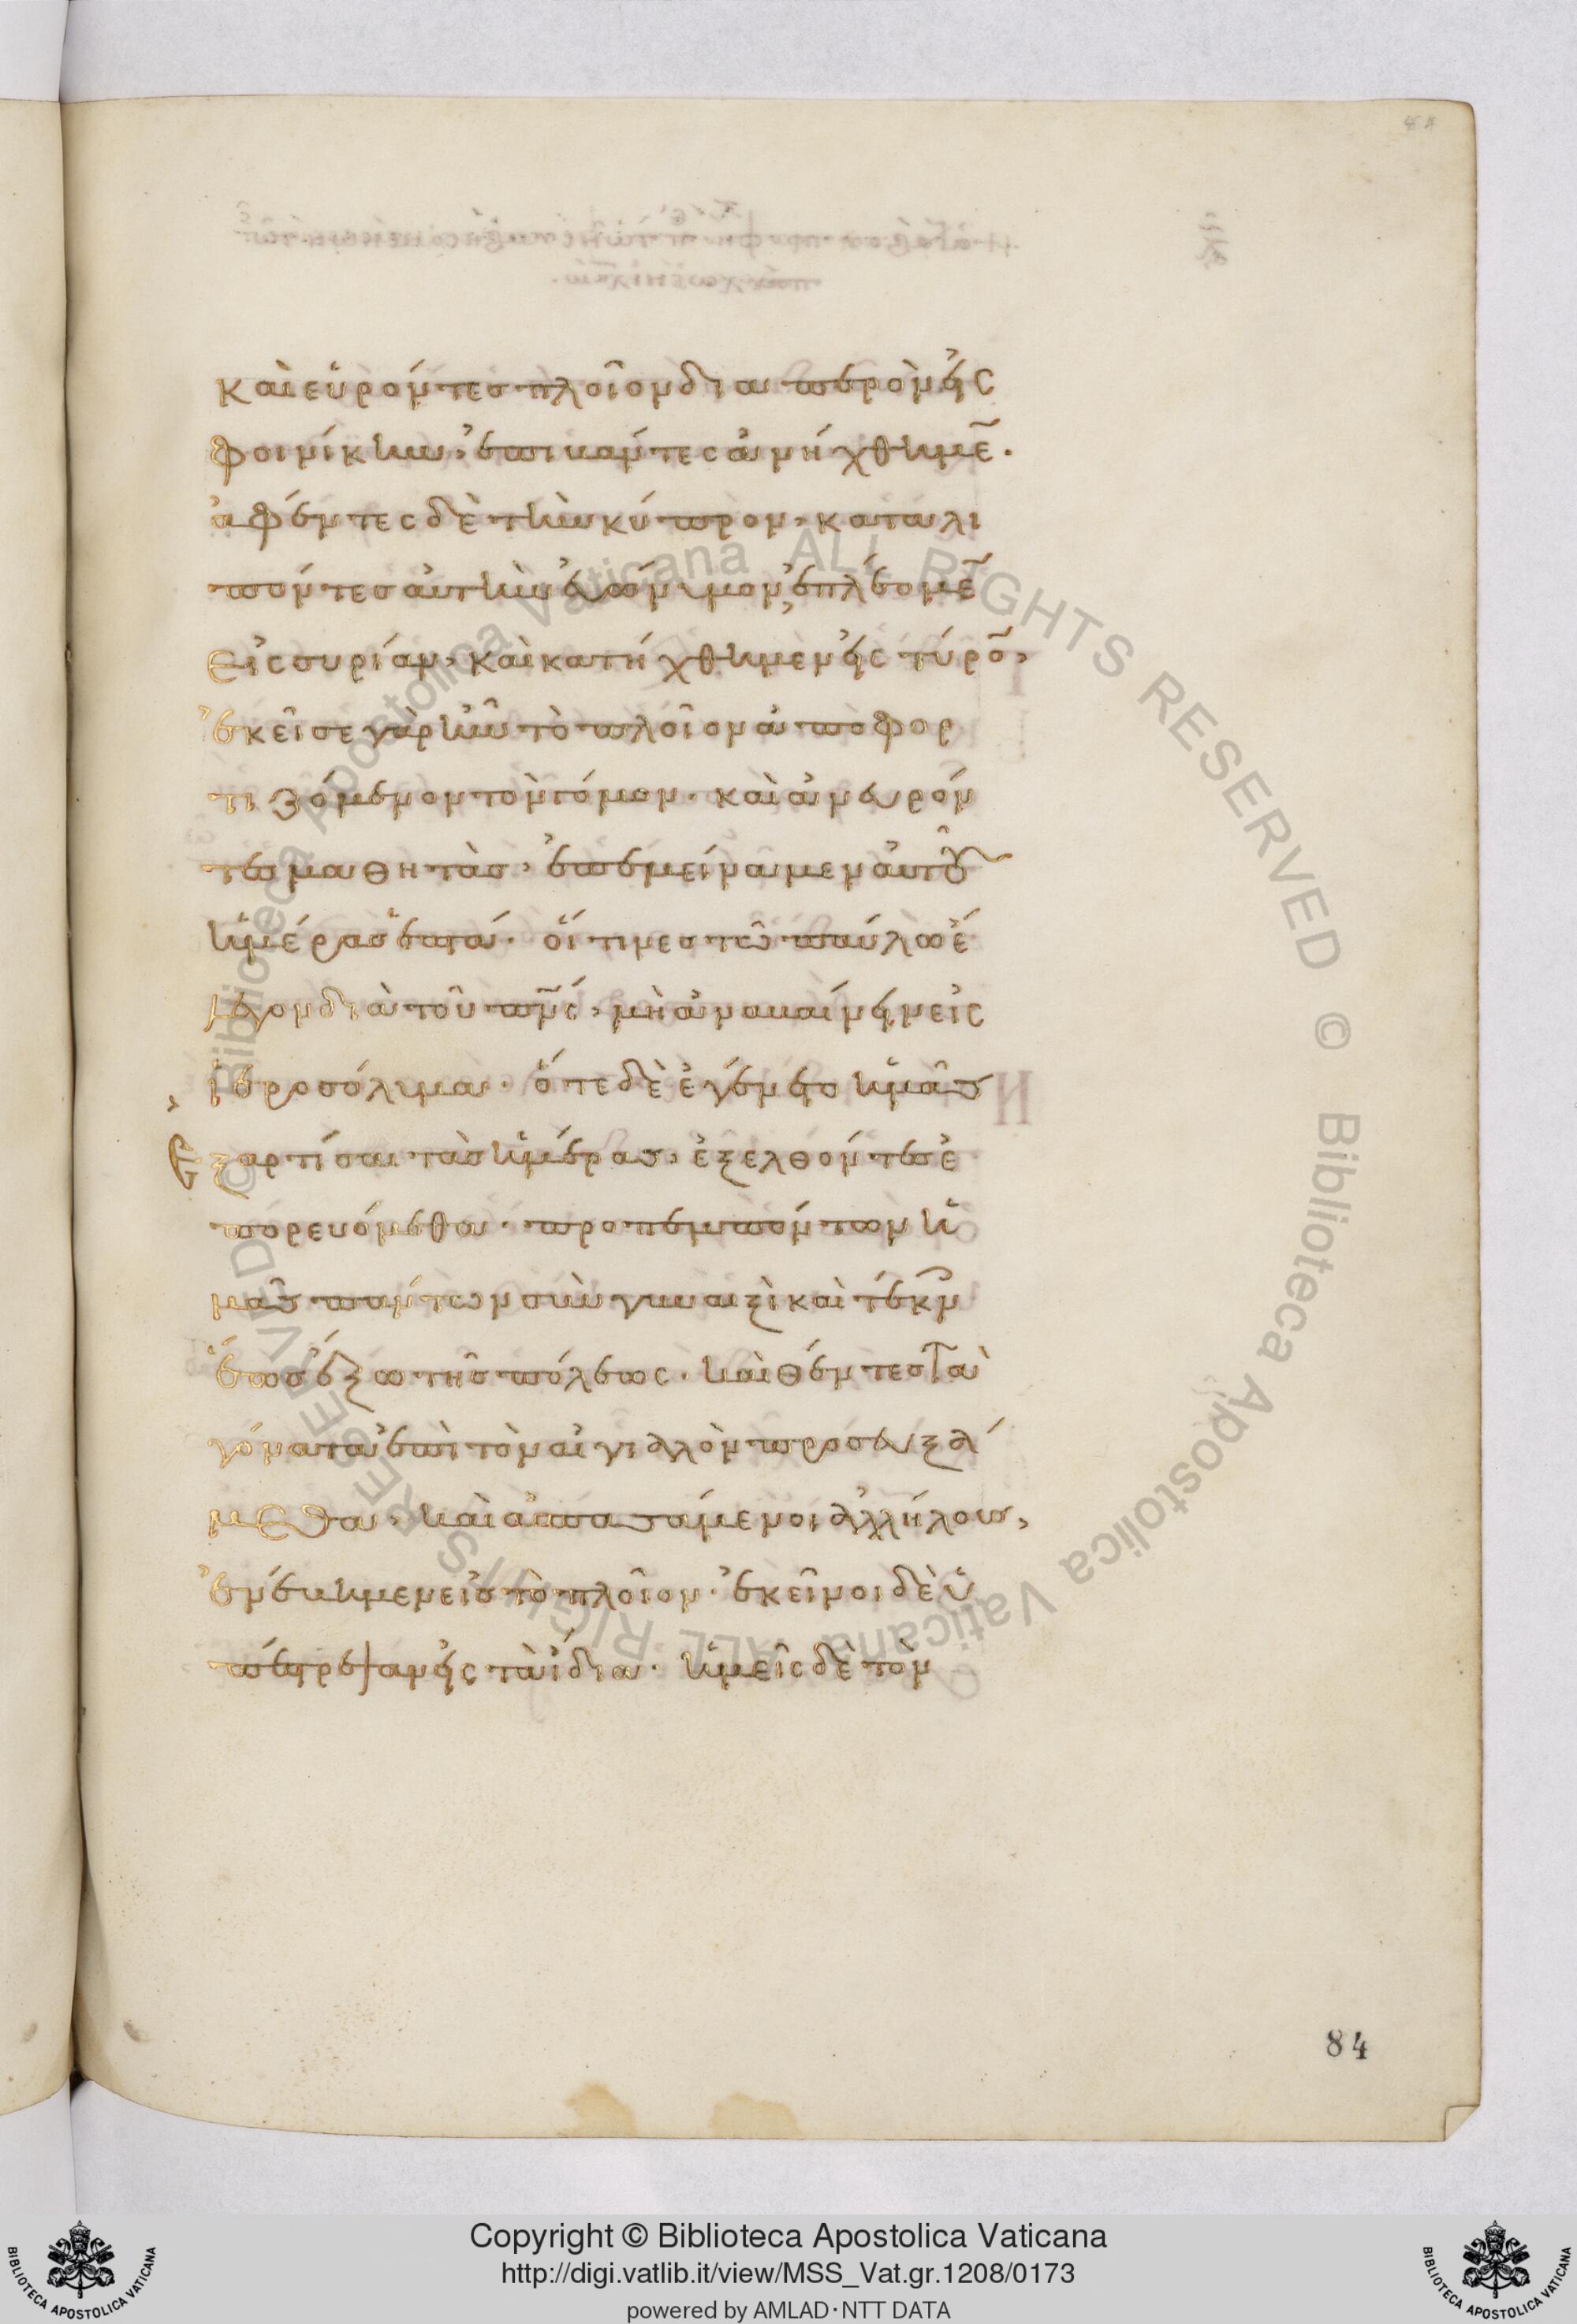 καὶ εὑρόντες πλοῖον διαπερὸν εἰς
φοινίκην, ἐπιβάντες ἀνήχθημε̄.
ἀφέντες δὲ τὴν κύπρον, καταλι
πόντες αὐτὴν εὐώνυμον, ἐπλέομε̄
εἰς συρίαν, καὶ κατήχθημεν εἰς τύρο̄,
ἐκεῖσε γὰρ ἦν τὸ πλοῖον ἀποφορ
τιζόμενον τὸν γόμον. καὶ ἀνευρόν
τες μαθητὰς, ἐπεμείναμεν αὐτοῦ
ἡμέρας ἑπτά. οἵτινες τῶ παύλω ἔ
λεγον διὰ τοῦ πν̄ς, μὴ ἀναβαίνειν εἰς
ἱεροσόλυμα. ὅτε δὲ ἐγένετο ἡμᾶς
ἐξαρτίσαι τὰς ἡμέρας, ἐξελθόντες ἐ
πορευόμεθα. προπεμπόντων ἡ
μᾶς πάντων σὺν γυναιξὶ καὶ τέκν
ἕως ἔξω τῆς πόλεως. καὶ θέντες τὰ
γόνατα ἐπὶ τὸν αἰγιαλὸν προσευξά
μεθα, καὶ ἀσπασάμενοι ἀλλήλους,
ἐνέβημεν εἰς τὸ πλοῖον. ἐκεῖνοι δὲ ὑ
πέστρεψαν εἰς τὰ ἴδια. ἡμεῖς δὲ τὸν
84
Copyright © Biblioteca Apostolica Vaticana
http://digi.vatlib.it/view/MSS_Vat.gr.1208/0173
powered by AMLAD·NTT DATA
BIBLIOTECA APOSTOLICA VATICANA
BIBLIOTECA APOSTOLICA VATICANA
© Biblioteca Apostolica Vaticana ALL RIGHTS RESERVED © Biblioteca Apostolica Vaticana ALL RIGHTS RESERVED